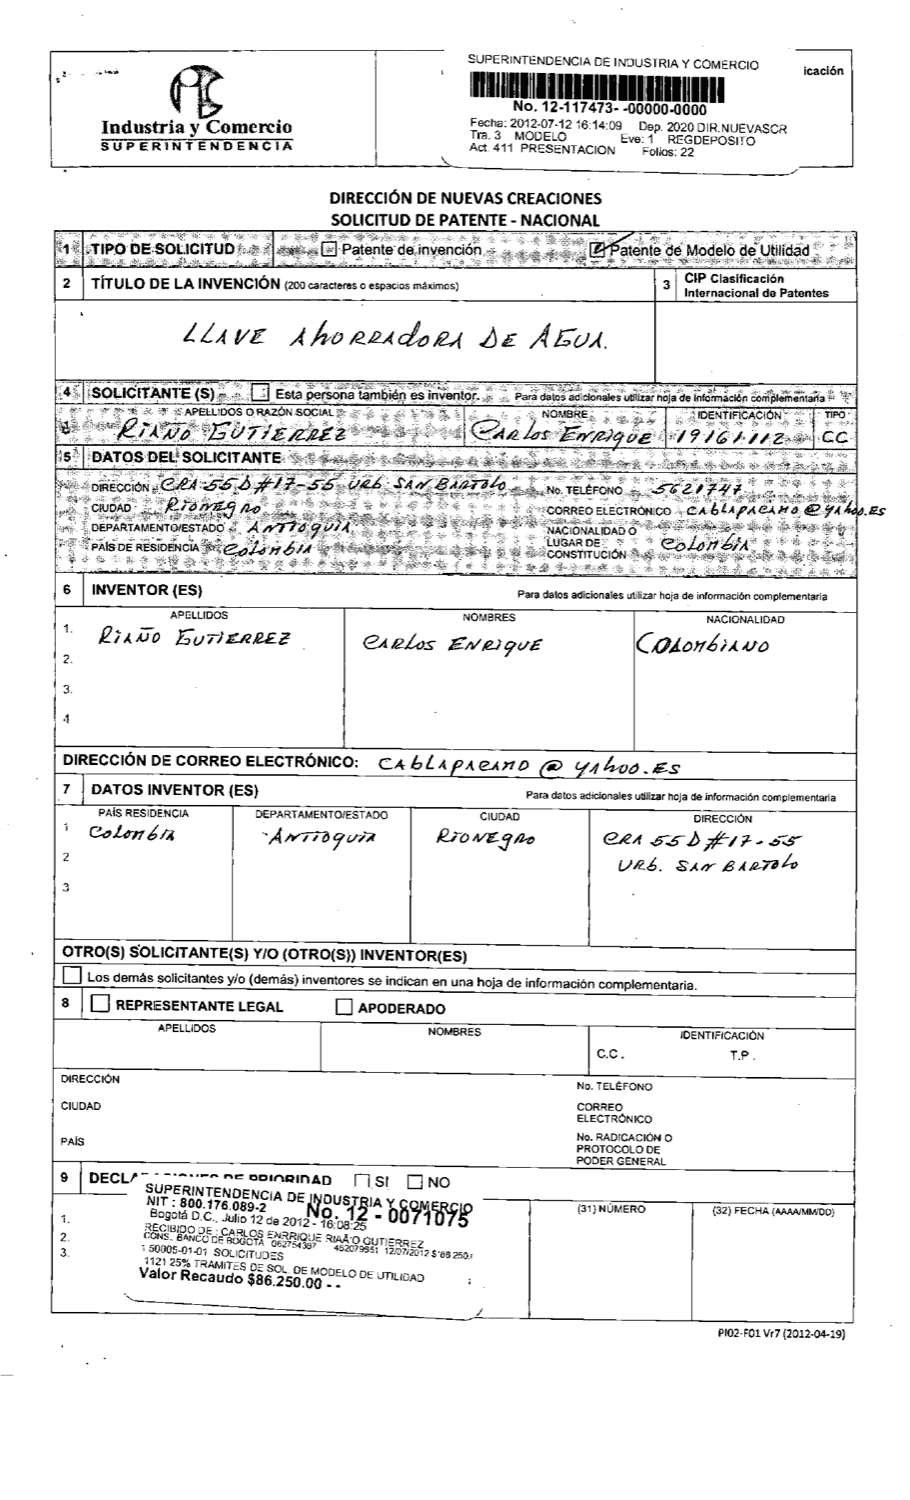 Industria y Comercio
SUPERINTENDENCIA
SUPERINTENDENCIA DE INDUSTRIA Y COMERCIO
icación
No. 12-117473- -00000-0000
Fecha: 2012-07-12 16:14:09 Dep. 2020 DIR.NUEVASCR
Tra. 3 MODELO Eve: 1 REGDEPOSITO
Act. 411 PRESENTACION Folios: 22
DIRECCIÓN DE NUEVAS CREACIONES
SOLICITUD DE PATENTE - NACIONAL
1 TIPO DE SOLICITUD Patente de invención Patente de Modelo de Utilidad
2 TÍTULO DE LA INVENCIÓN (200 caracteres o espacios máximos) 3 CIP Clasificación
Internacional de Patentes
LLAVE AhORRAdORA DE AGUA.
4 SOLICITANTE (S) Esta persona también es inventor. Para datos adicionales utilizar hoja de información complementaria
APELLIDOS O RAZÓN SOCIAL NOMBRE IDENTIFICACIÓN TIPO
RIAÑO GUTIERREZ CARLOS ENRIQUE 19161.112 CC
5 DATOS DEL SOLICITANTE
DIRECCIÓN CRA 55 D # 17-55 URB. SAN BARTOLO No. TELÉFONO 5621747
CIUDAD RIONEGRO CORREO ELECTRÓNICO CABLAPAEAMO @ YAhoo.ES
DEPARTAMENTO/ESTADO ANTIOQUIA NACIONALIDAD O
LUGAR DE
CONSTITUCIÓN Colombia
PAÍS DE RESIDENCIA Colombia
6 INVENTOR (ES) Para datos adicionales utilizar hoja de información complementaria
APELLIDOS NOMBRES NACIONALIDAD
1. RIAÑO GUTIERREZ CARLOS ENRIQUE COLOMbIANO
2.
3.
4
DIRECCIÓN DE CORREO ELECTRÓNICO: CABLAPAEAMO @ YAhoo.ES
7 DATOS INVENTOR (ES) Para datos adicionales utilizar hoja de información complementaria
PAÍS RESIDENCIA DEPARTAMENTO/ESTADO CIUDAD DIRECCIÓN
1 Colombia ANTIOQUIA RIONEGRO CRA 55 D # 17-55
URB. SAN BARTOLO
2
3
OTRO(S) SOLICITANTE(S) Y/O (OTRO(S)) INVENTOR(ES)
Los demás solicitantes y/o (demás) inventores se indican en una hoja de información complementaria.
8 REPRESENTANTE LEGAL APODERADO
APELLIDOS NOMBRES IDENTIFICACIÓN
C.C. T.P.
DIRECCIÓN No. TELÉFONO
CIUDAD CORREO
ELECTRÓNICO
PAÍS No. RADICACIÓN O
PROTOCOLO DE
PODER GENERAL
9 DECLARACIONES DE PRIORIDAD SI NO
(31) NÚMERO (32) FECHA (AAAA/MM/DD)
1.
2.
3.
SUPERINTENDENCIA DE INDUSTRIA Y COMERCIO
NIT : 800.176.089-2 No. 12 - 0071075
Bogotá D.C., Julio 12 de 2012 - 16:08:25
RECIBIDO DE : CARLOS ENRRIQUE RIAÃO GUTIERREZ
CONS. BANCO DE BOGOTA 062754387 452079551 12/07/2012 $ 86.250.
50005-01-01 SOLICITUDES
1121 25% TRAMITES DE SOL. DE MODELO DE UTILIDAD
Valor Recaudo $86.250.00 - -
PI02-F01 Vr7 (2012-04-19)